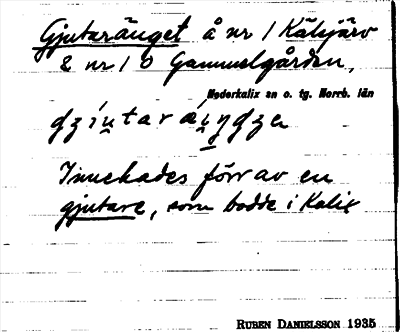 Gjutaränget å nr 1 Kälvjärv
& nr 10 Gammelgården,
Nederkalix sn o. tg. Norrb. län
Innehades förr av en
gjutare, som bodde i Kalix
RUBEN DANIELSSON 1935